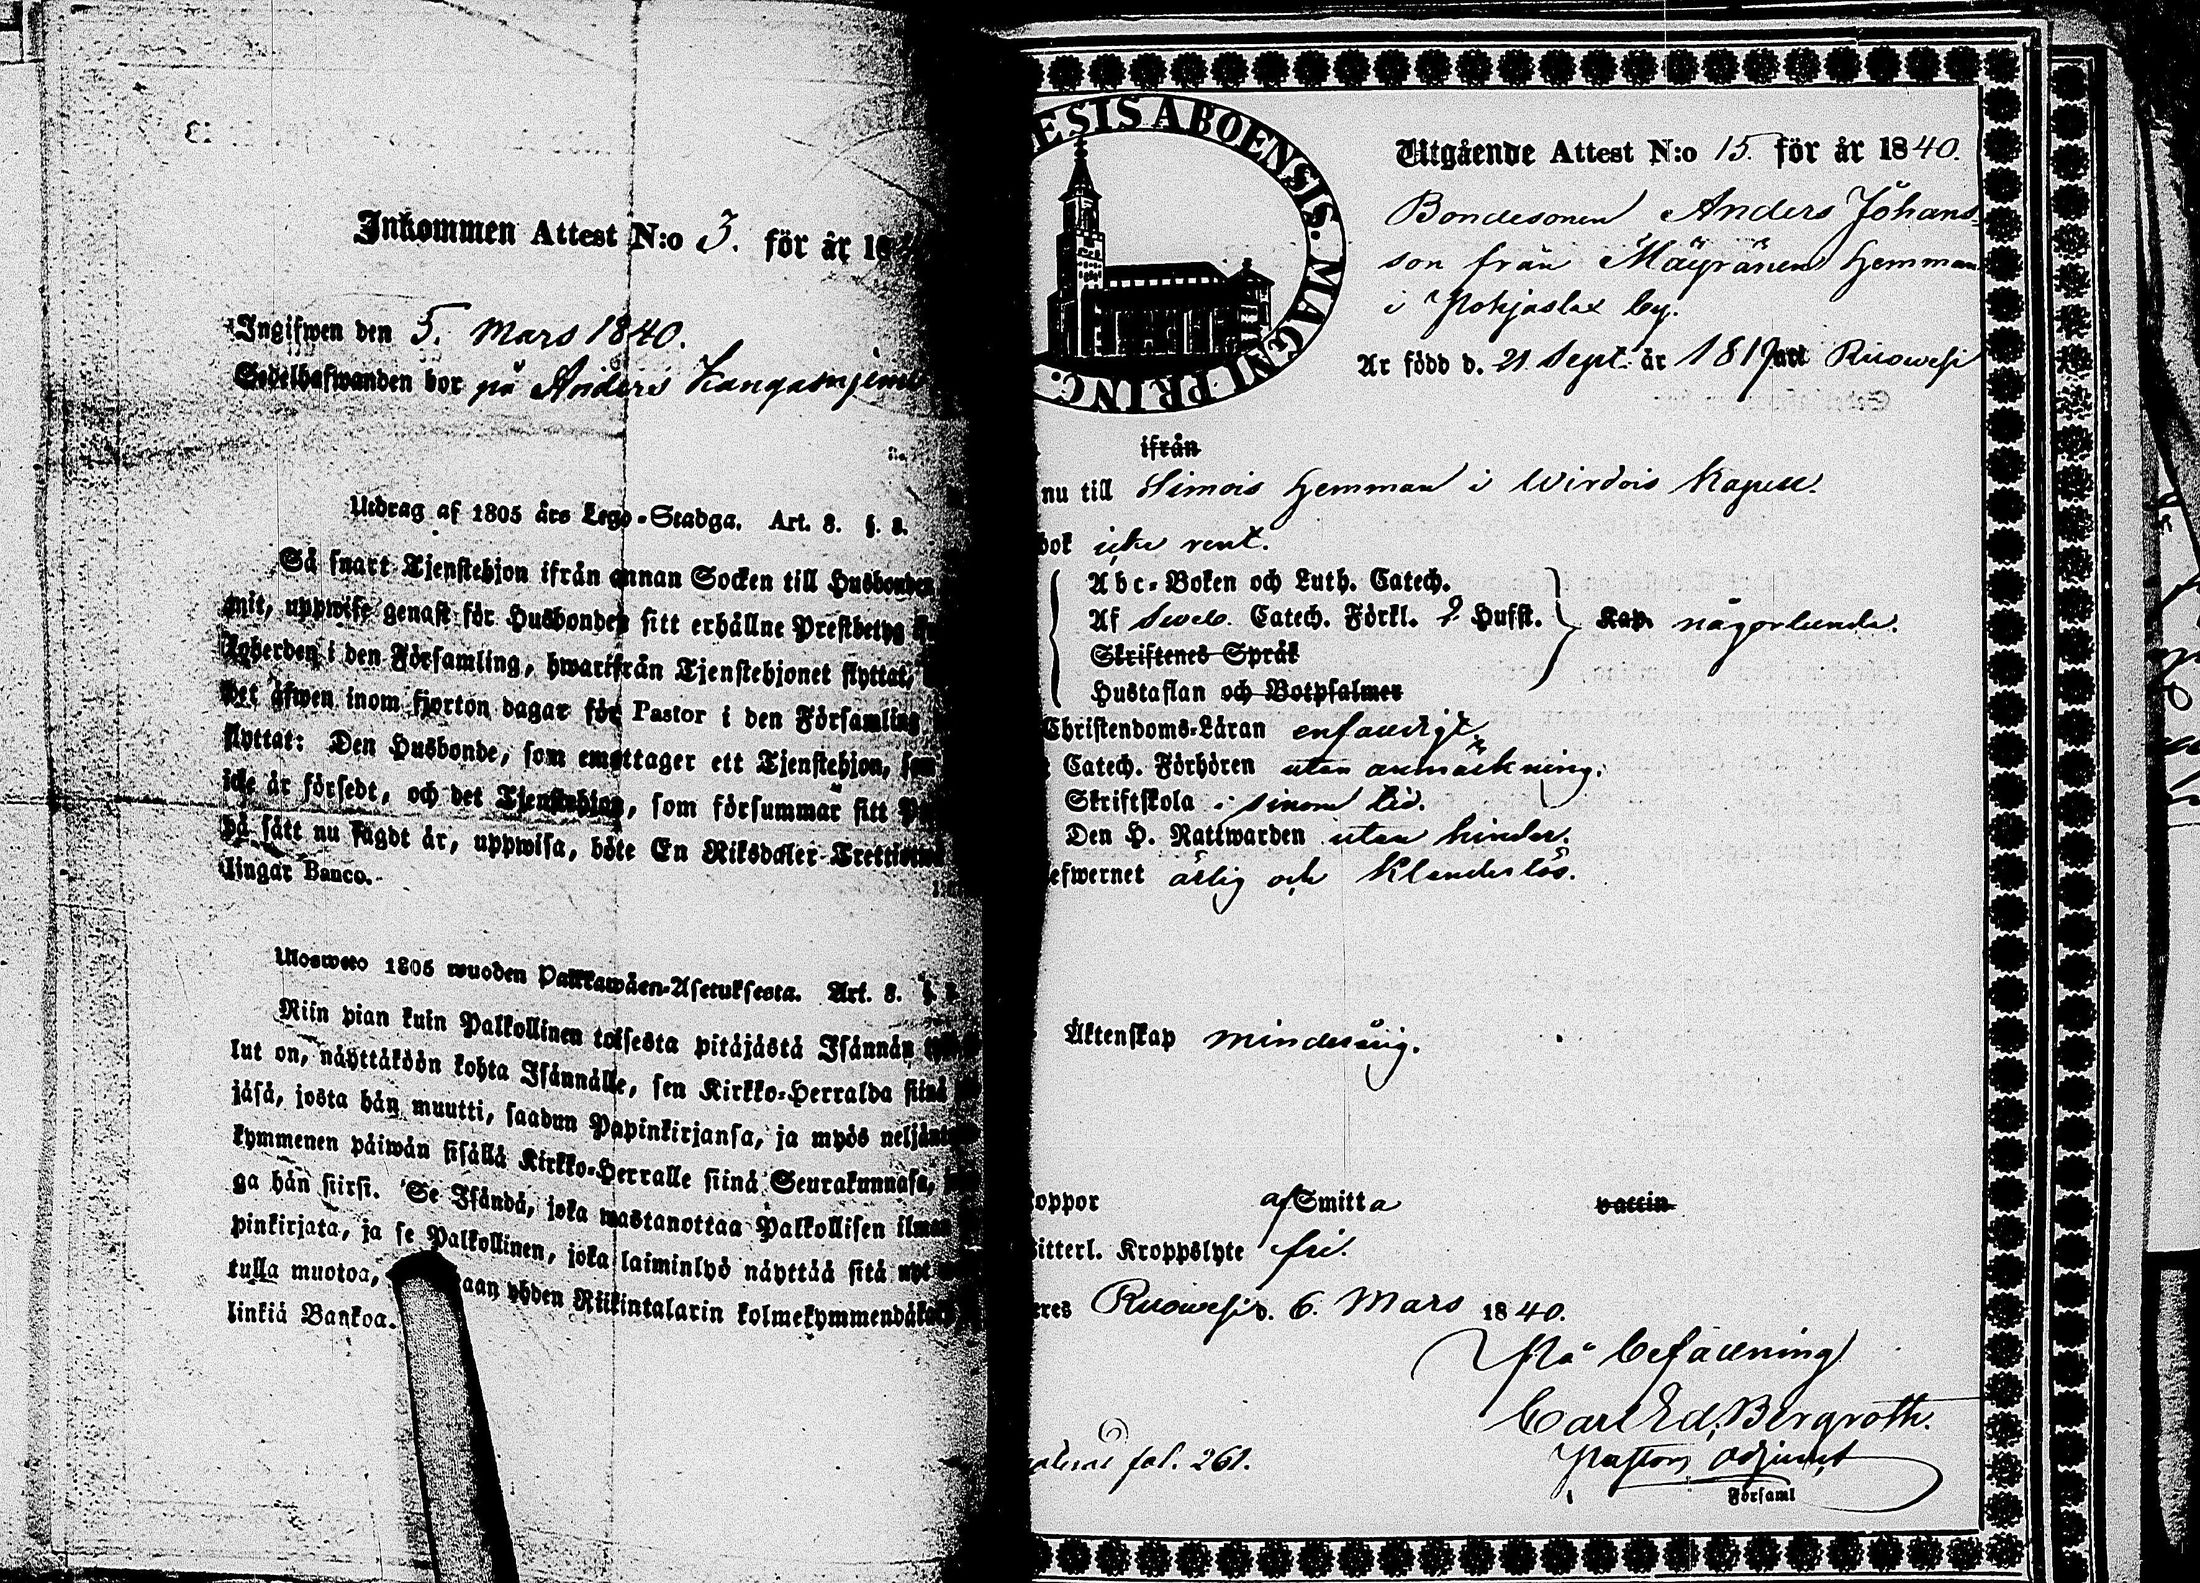 Inkommen Attest N:o 3. för år 18
Ingifwen den 5. Mars 1840.
Sedelhafwanden bor på Anders
Utdrag af 1805 års Lego-Stadga. Art. 8. §. 8.
Så snart Tjenstehjon ifrån annan Socken till Husbonden
mit, uppwise genast för Husbonden sitt erhållne Prestbetyg
i den Församling, hwarifrån Tjenstehjonet flyttat,
det äfwen inom fjorton dagar för Pastor i den Församling
flyttat: Den Husbonde, som emottager ett Tjenstehjon, som
icke är försedt, och det Tjenstehjon, som försummar sitt
på sätt nu sagdt är, uppwisa, böte En Riksdaler Trettio
lingar Banco.
Ulosweto 1805 wuoden Palkkawäen-Asetuksesta. Art. 8. §.
Niin pian kuin Palkollinen toisesta pitäjästä Isännän
lut on, näyttäköön kohta Isännälle, sen Kirkko-Herralda siinä
jäsä, josta hän muutti, saadun Papinkirjansa, ja myös neljän
kymmenen päiwän sisällä Kirkko-Herralle siinä Seurakunnasa,
ga hän siirsi. Se Isändä, joka wastanottaa Palkollisen ilman
pinkirjata, ja se Palkollinen, joka laiminlyö näyttää sitä nyt
tulla muotoa, aan yhden Riikintalarin kolmekymmendäka
linkiä Bankoa.
ESIS ABOENSIS. MAGNI PRINC.
Utgående Attest N:o 15. för år 1840.
Bondesonen Anders Johans-
son från Mäyränen Hemman
i Pohjaslax by.
Är född d. 21 Sept. år 1817 uti Ruowesi
ifrån
nu till Simois Hemman i Wirdois Kapell.
bok icke rent.
Abc-Boken och Luth. Catech.
Af Sweb. Catech. Förkl. 2 Hufst. Kap. någorlunda.
Skriftenes Språk
Hustaflan och Botpsalmer
Christendoms-Läran enfaldigt.
Catech. Förhören utan anmärkning.
Skriftskola i sinom tid.
Den H. Nattwarden utan hinder.
efwernet ärlig och klanderlös.
Äktenskap minderårig.
oppor af Smitta vaccin
itterl. Kroppslyte fri.
eres Ruowesi d. 6. Mars 1840.
På befallning
Carl Ed. Bergroth.
Pastors Adjunct
Församl
fol. 261.